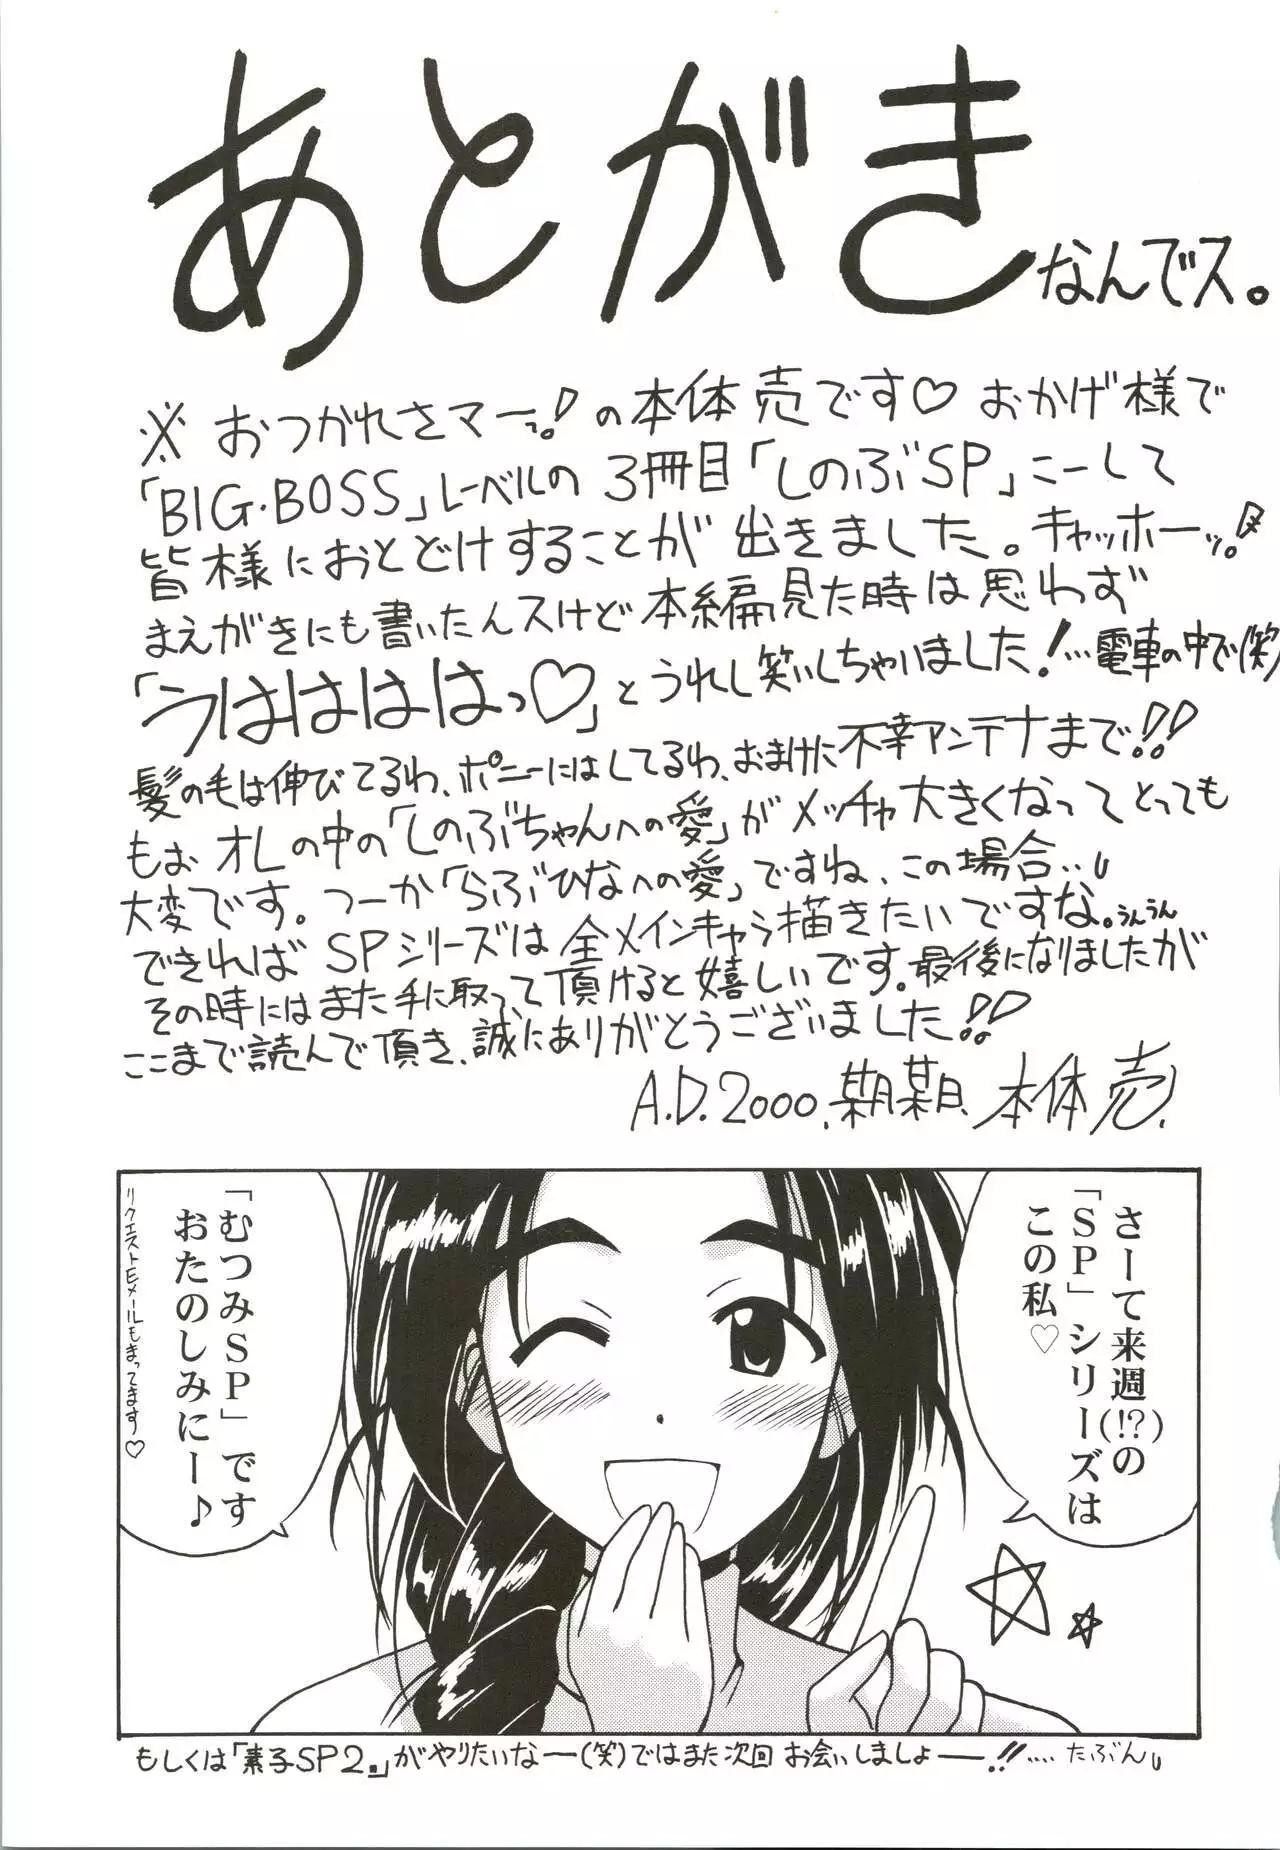 あとがき なんでス。
※おつかれさマーっ!の本体売です♡おかげ様で
「BIG・BOSS」レーベルの3冊目「しのぶSP」こーして
皆様におとどけすることが出きました。キャッホーッ!
まえがきにも書いたんスけど本編見た時は思わず
「うはははっ♡」とうれし笑いしちゃいました!…電車の中で(笑)
髪の毛は伸びてるわ、ポニーにはしてるわ、おまけに不幸アンテナまで!!
もぉオレの中の「しのぶちゃんへの愛」がメッチャ大きくなってとっても
大変です。つーか「らぶひなへの愛」ですね、この場合…。
できればSPシリーズは全メインキャラ描きたいですな。うんうん
その時にはまた手に取って頂けると嬉しいです。最後になりましたが
ここまで読んで頂き、誠にありがとうございました!!
A.D.2000.某月某日、本体売.
さーて来週(!?)の
「SP」シリーズは
この私♡
「むつみSP」です
おたのしみにー♪
リクエストEメールもまってます♡
もしくは「素子SP2。」がやりたいなー(笑)ではまた次回お会いしましょーー!!……たぶん。